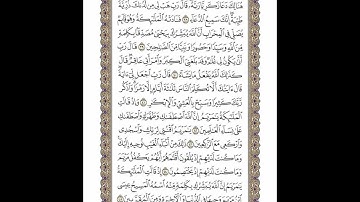 هُنَالِكَ دَعَا زَكَرِيَّا رَبَّهُۥ قَالَ رَبِّ هَبْ لِي مِن لَّدُنكَ ذُرِّيَّةً
طَيِّبَةً إِنَّكَ سَمِيعُ ٱلدُّعَآءِ ٣٨ فَنَادَتْهُ ٱلْمَلَٰٓئِكَةُ وَهُوَ قَآئِمٌ
يُصَلِّي فِي ٱلْمِحْرَابِ أَنَّ ٱللَّهَ يُبَشِّرُكَ بِيَحْيَىٰ مُصَدِّقًۢا بِكَلِمَةٍ
مِّنَ ٱللَّهِ وَسَيِّدًا وَحَصُورًا وَنَبِيًّا مِّنَ ٱلصَّٰلِحِينَ ٣٩ قَالَ رَبِّ
أَنَّىٰ يَكُونُ لِي غُلَٰمٌ وَقَدْ بَلَغَنِيَ ٱلْكِبَرُ وَٱمْرَأَتِي عَاقِرٌ قَالَ
كَذَٰلِكَ ٱللَّهُ يَفْعَلُ مَا يَشَآءُ ٤٠ قَالَ رَبِّ ٱجْعَل لِّيٓ ءَايَةً
قَالَ ءَايَتُكَ أَلَّا تُكَلِّمَ ٱلنَّاسَ ثَلَٰثَةَ أَيَّامٍ إِلَّا رَمْزًا وَٱذْكُر
رَّبَّكَ كَثِيرًا وَسَبِّحْ بِٱلْعَشِيِّ وَٱلْإِبْكَٰرِ ٤١ وَإِذْ قَالَتِ
ٱلْمَلَٰٓئِكَةُ يَٰمَرْيَمُ إِنَّ ٱللَّهَ ٱصْطَفَىٰكِ وَطَهَّرَكِ وَٱصْطَفَىٰكِ
عَلَىٰ نِسَآءِ ٱلْعَٰلَمِينَ ٤٢ يَٰمَرْيَمُ ٱقْنُتِي لِرَبِّكِ وَٱسْجُدِي
وَٱرْكَعِي مَعَ ٱلرَّٰكِعِينَ ٤٣ ذَٰلِكَ مِنْ أَنۢبَآءِ ٱلْغَيْبِ نُوحِيهِ إِلَيْكَ
وَمَا كُنتَ لَدَيْهِمْ إِذْ يُلْقُونَ أَقْلَٰمَهُمْ أَيُّهُمْ يَكْفُلُ مَرْيَمَ
وَمَا كُنتَ لَدَيْهِمْ إِذْ يَخْتَصِمُونَ ٤٤ إِذْ قَالَتِ ٱلْمَلَٰٓئِكَةُ
يَٰمَرْيَمُ إِنَّ ٱللَّهَ يُبَشِّرُكِ بِكَلِمَةٍ مِّنْهُ ٱسْمُهُ ٱلْمَسِيحُ عِيسَى
ٱبْنُ مَرْيَمَ وَجِيهًا فِي ٱلدُّنْيَا وَٱلْءَاخِرَةِ وَمِنَ ٱلْمُقَرَّبِينَ ٤٥